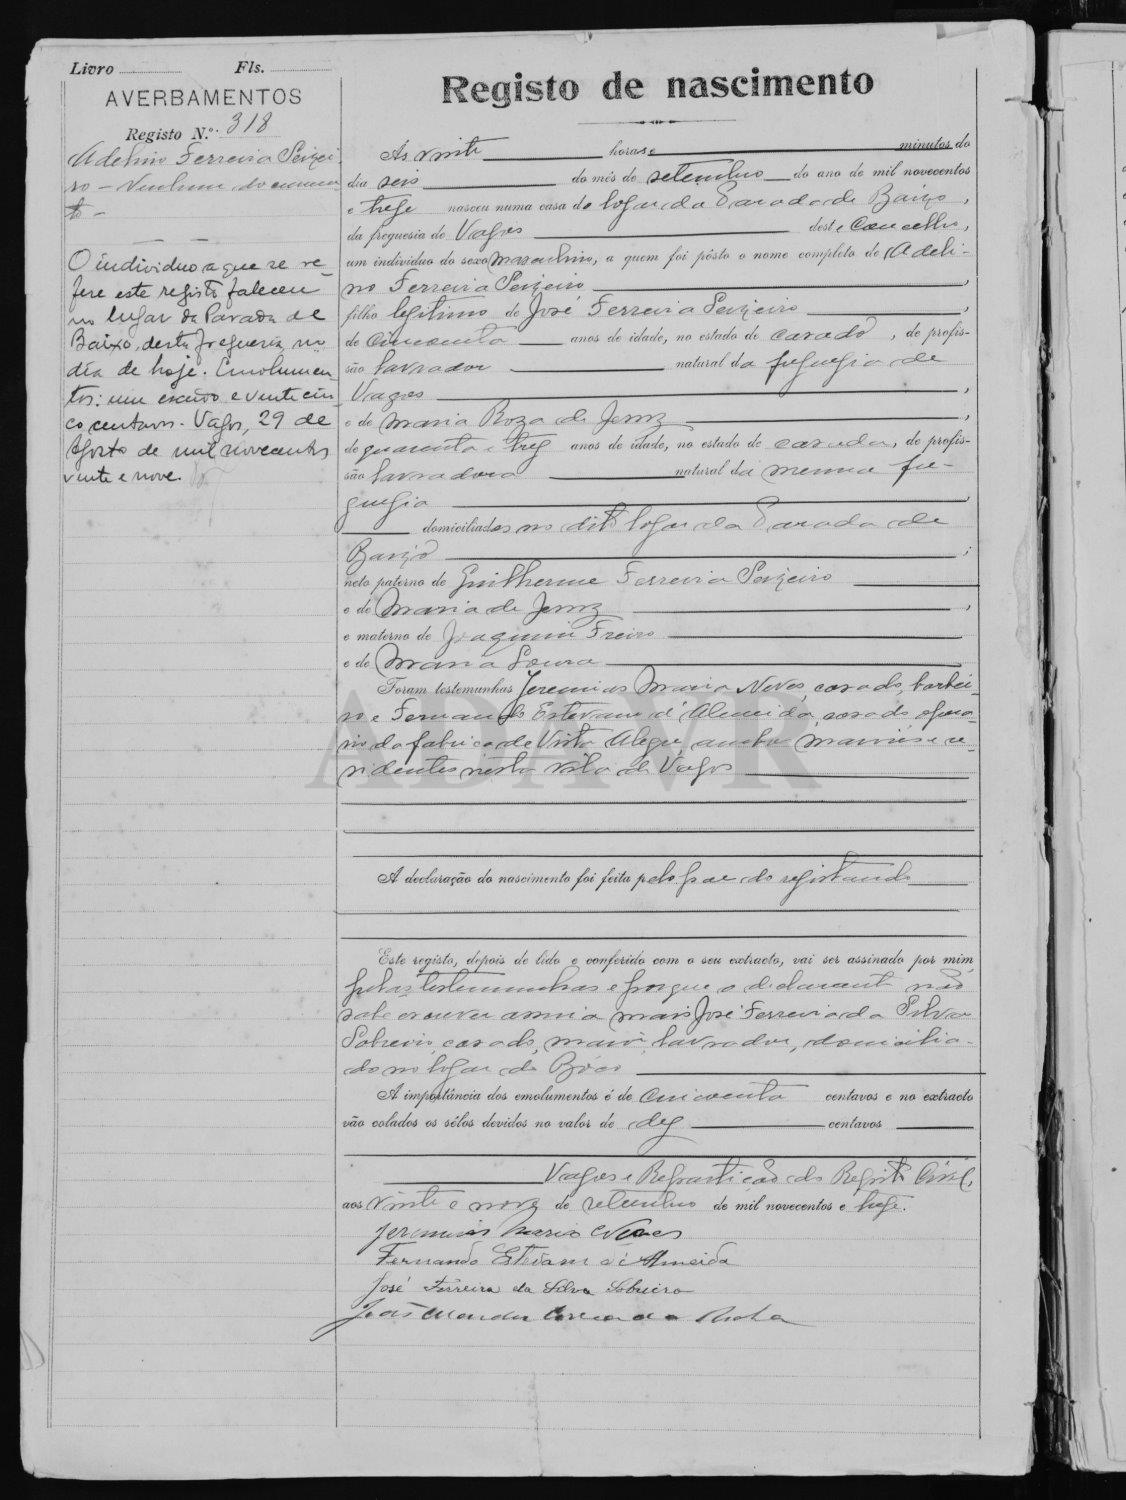 Livro Fls.
AVERBAMENTOS
Registo N.º 318
Adelino Ferreira Seixei
ro - Nenhum documen
to -
O individuo a que se re-
fere este registo faleceu
no lugar da Parada de
Baixo, desta freguesia, no
dia de hoje. Emolumen-
tos: um escudo e vinte cin-
co centavos. Vagos, 29 de
Agosto de mil novecentos
vinte e nove.
Registo de nascimento
Ás vinte horas e minutos do
dia seis do mês de setembro do ano de mil novecentos
e treze nasceu numa casa do logar da Parada de Baixo,
da freguesia de Vagos deste Concelho,
um indivíduo do sexo masculino, a quem foi pôsto o nome completo de Adeli-
no Ferreira Seixeiro,
filho legitimo de José Ferreira Seixeiro,
de cincoenta anos de idade, no estado de casado, de profis-
são lavrador natural da freguezia de
Vagos,
e de Maria Roza de Jesuz,
de quarenta e trez anos de idade, no estado de casada, de profis-
são lavradora natural da mesma fre-
guezia,
domiciliados no dito logar da Parada de
Baixo;
neto paterno de Guilherme Ferreira Seixeiro
e de Maria de Jesuz,
e materno de Joaquim Freire
e de Maria Loura
Foram testemunhas Jeremias Maria Neves, casado, barbei-
ro e Fernando Estevam d'Almeida, casado opera-
rio da fabrica de Vista Alegre, ambos maiores e re-
sidentes nesta vila de Vagos
ADAVR
A declaração do nascimento foi feita pelo pae do registando
Este registo, depois de lido e conferido com o seu extracto, vai ser assinado por mim
pelas testemunhas e porque o declarante não
sabe escrever assina mais José Ferreira da Silva
Sobreiro, casado, maior, lavrador, domicilia-
do no logar do Bôco
A importância dos emolumentos é de cincoenta centavos e no extracto
vão colados os sêlos devidos no valor de dez centavos
Vagos e Repartição do Registo Civil,
aos vinte e nove de setembro de mil novecentos e treze.
Jeremias Maria Neves
Fernando Estevam d'Almeida
José Ferreira da Silva Sobreiro
João Mendes Correia da Rocha